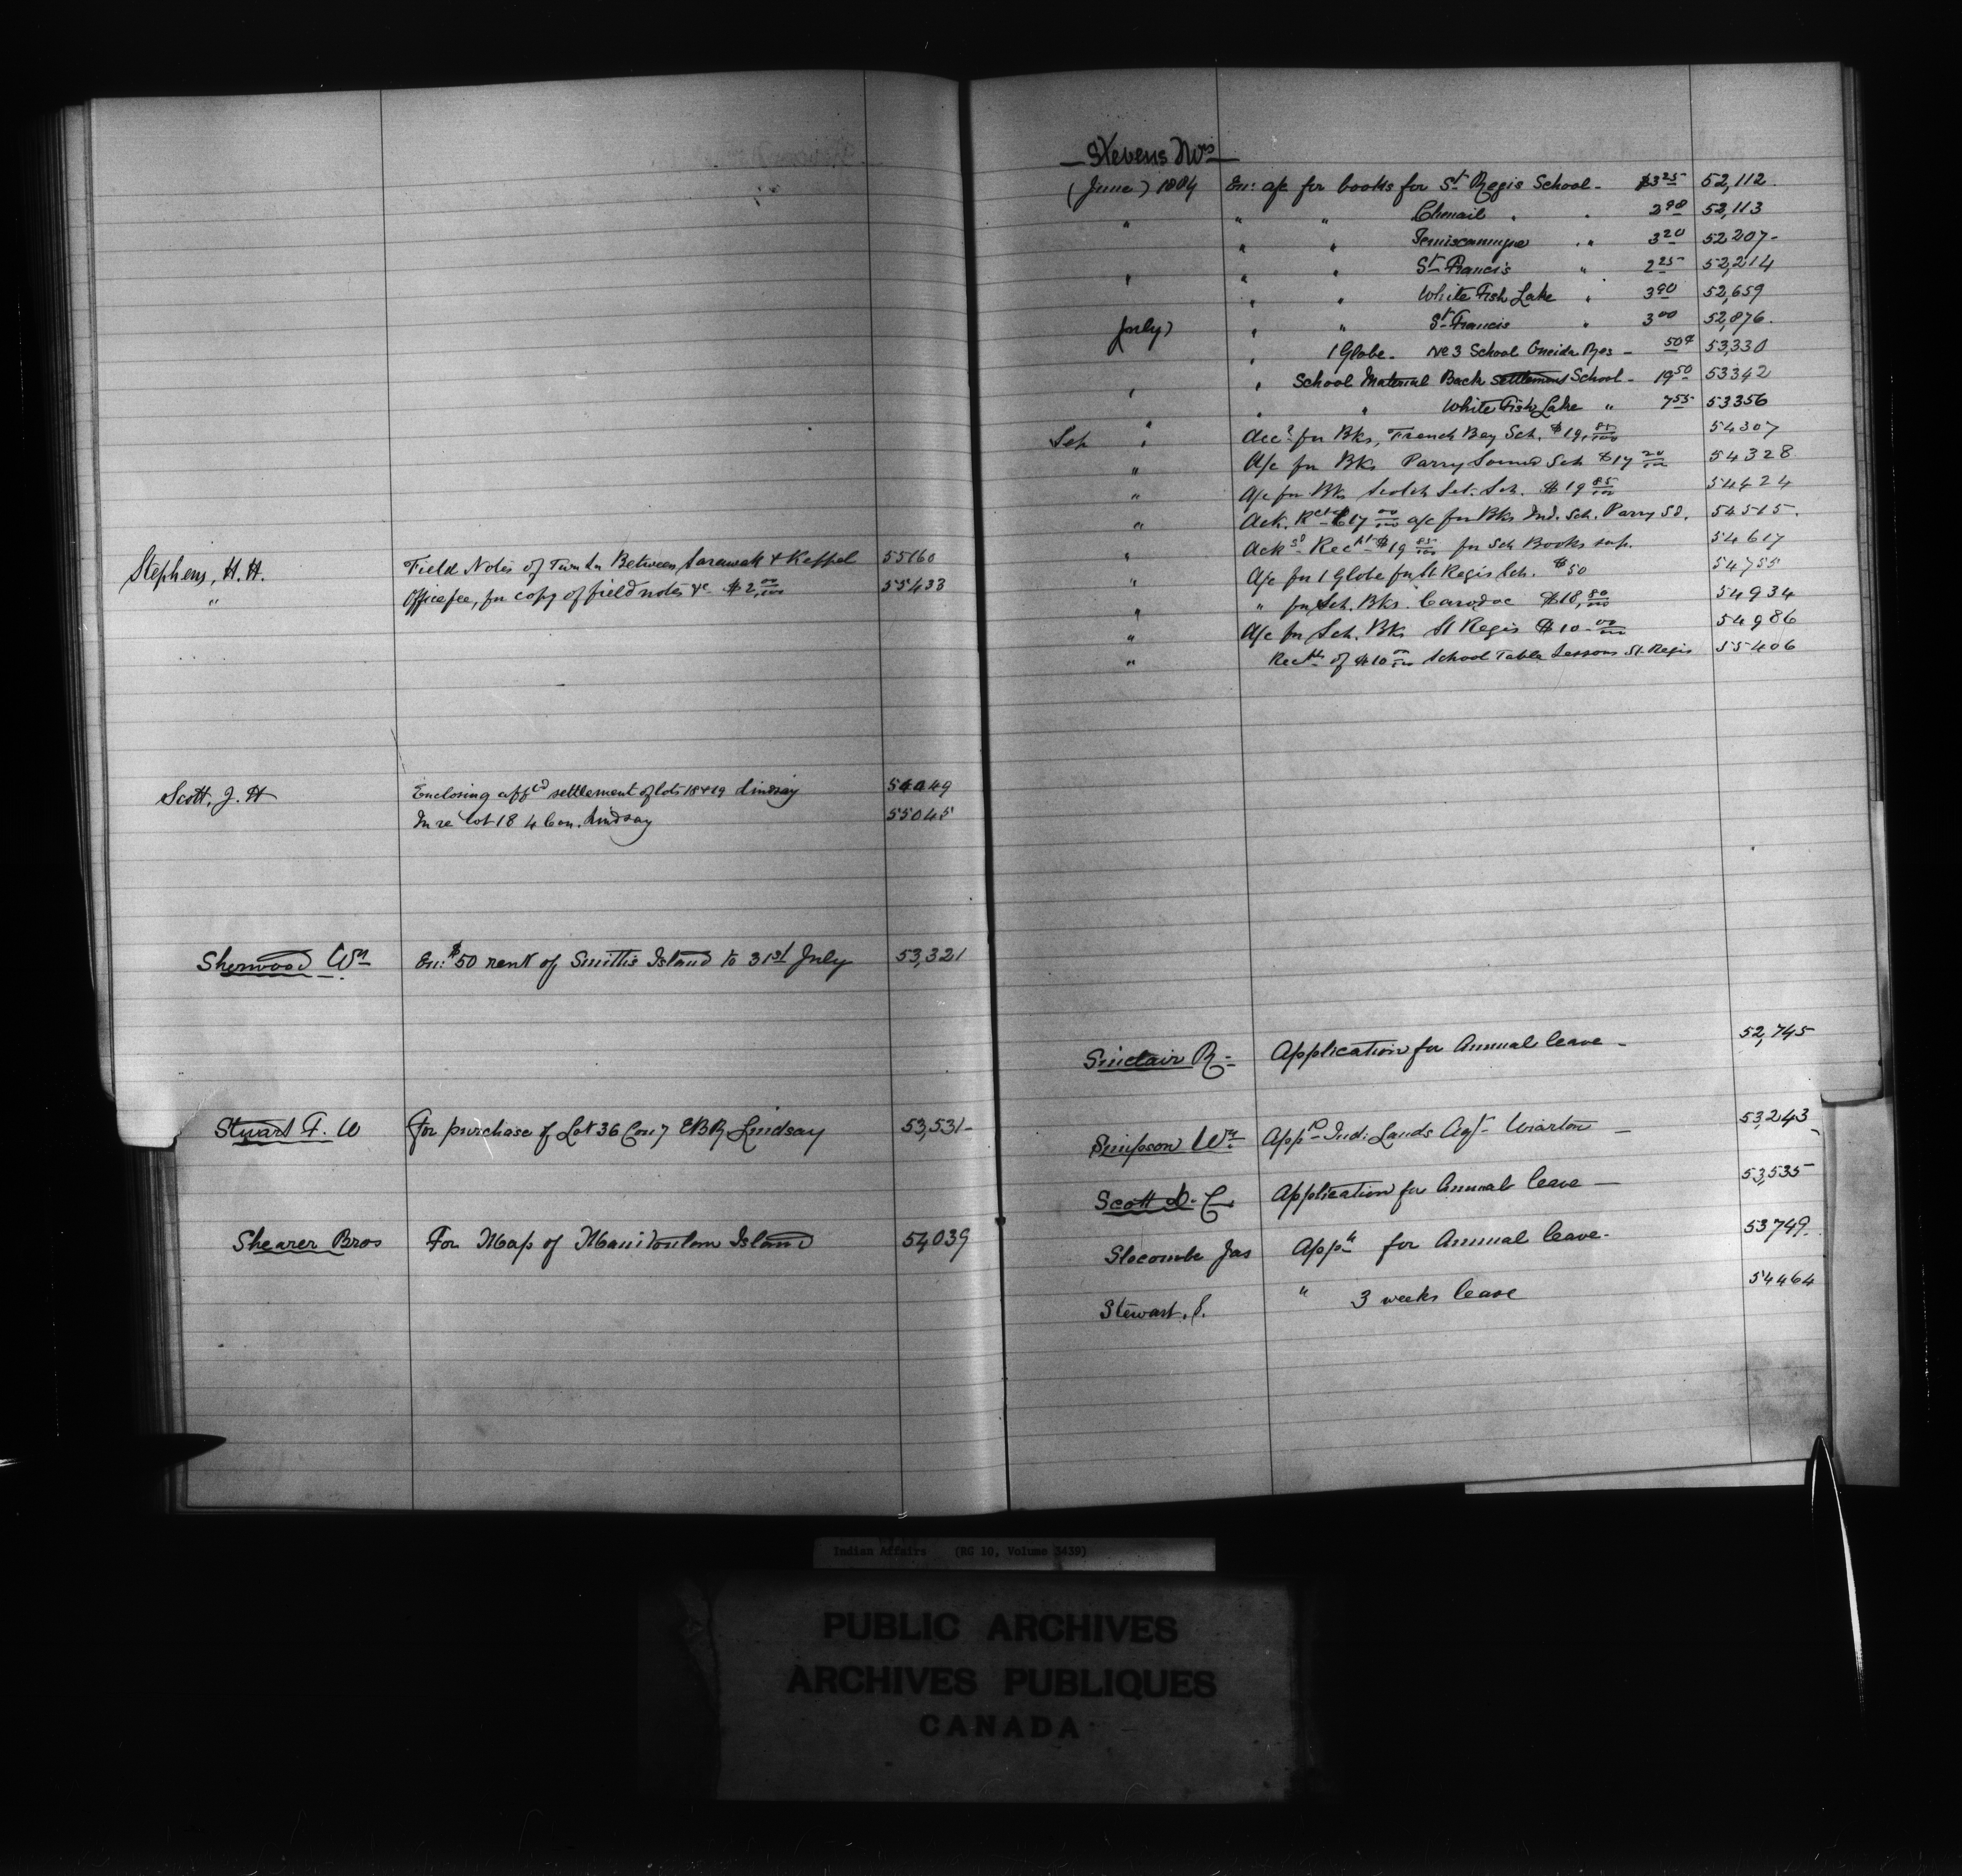 Stephens, H. H. Field Notes of Town Ln Between Sarawak & Keppel 55160
" Office fee, for copy of field notes &c $2, 00/100 55433
Scott, J. H Enclosing aff settlement of lots 18 & 19 Lindsay 54049
In re lot 18 4 Con. Lindsay 55045
Sherwood Wm En: $50 rent of Smith's Island to 31st July 53,321
Stuart F. W For purchase of Lot 36 Con 7 EBR Lindsay 53,531-
Shearer Bros For Map of Manitoulin Island 54,039
Stevens
(June) 1884 En: a/c for books for St Regis School - $3 25 52,112.
" " " Chenail " " 2 98 52,113
" " Temiscamingue " " 3 20 52207-
" " " St Francis " 2 25 52,214
" " White Fish Lake " 3 90 52,659
July) " " St Francis " 3 00 52,876.
" 1 Globe - No 3 School Oneida Res - 50¢ 53,330
" " School Material Back Settlement School - 19 50 53342
" " White Fish Lake " 7 55 53356
Sep " Acct for Bks, French Bay Sch. $19, 85/100 54307
" A/c for Bks Parry Sound Sch $17 20/100 54328
" A/c for Bks Scotch Set. Sch. $19 85/100 54424
" Ack. Rect $17 00/100 a/c for Bks Ind. Sch. Parry Sd. 54515.
" Ack Rect $19 85/100 for Sch Books sup. 54617
" A/c for 1 Globe for St Regis Sch. $50 54755
" " for Sch. Bks. Caradoc $18, 80/100 54934
" A/c for Sch. Bks St Regis $10 - 00/100 54986
" Rect of $10 00/100 School Table Lessons St. Regis 55406
Sinclair R - Application for Annual leave - 52,745
Simpson Wm Appd Ind: Lands Agt - Wiarton - 53,243
Scott D. C. Application for Annual leave - 53,535
Slocombe Jas Appn for Annual leave - 53749.
Stewart, S. " 3 weeks leave 54464
Indian Affairs (RG 10, Volume 3439)
PUBLIC ARCHIVES
ARCHIVES PUBLIQUES
CANADA